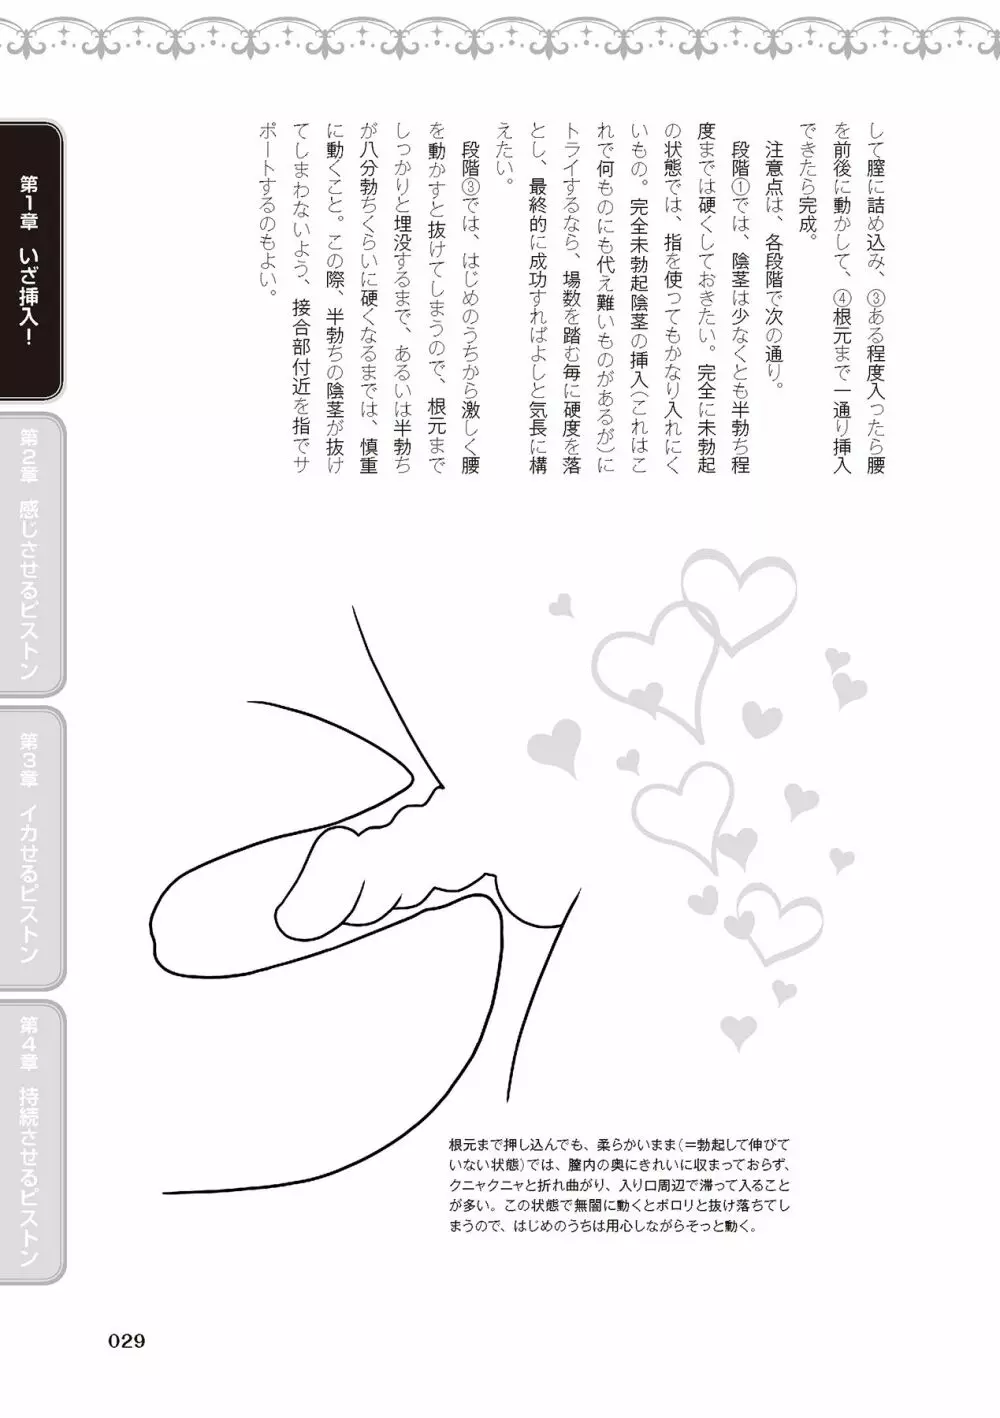 して膣に詰め込み、③ある程度入ったら腰
を前後に動かして、④根元まで一通り挿入
できたら完成。
注意点は、各段階で次の通り。
段階①では、陰茎は少なくとも半勃ち程
度までは硬くしておきたい。完全に未勃起
の状態では、指を使ってもかなり入れにく
いもの。完全未勃起陰茎の挿入（これはこ
れで何ものにも代え難いものがあるが）に
トライするなら、場数を踏む毎に硬度を落
とし、最終的に成功すればよしと気長に構
えたい。
段階③では、はじめのうちから激しく腰
を動かすと抜けてしまうので、根元まで
しっかりと埋没するまで、あるいは半勃ち
が八分勃ちくらいに硬くなるまでは、慎重
に動くこと。この際、半勃ちの陰茎が抜け
てしまわないよう、接合部付近を指でサ
ポートするのもよい。
第1章 いざ挿入！
第2章 感じさせるピストン
第3章 イカせるピストン
第4章 持続させるピストン
根元まで押し込んでも、柔らかいまま（＝勃起して伸びて
いない状態）では、膣内の奥にきれいに収まっておらず、
クニャクニャと折れ曲がり、入り口周辺で滞って入ること
が多い。この状態で無闇に動くとポロリと抜け落ちてし
まうので、はじめのうちは用心しながらそっと動く。
029